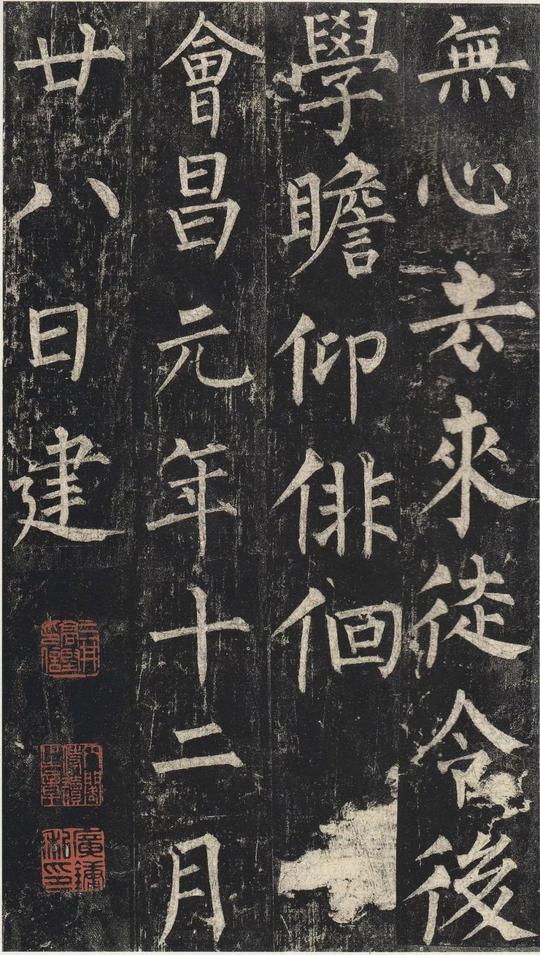 無心去來徒令後
學瞻仰俳佪
會昌元年十二月
廿八日建